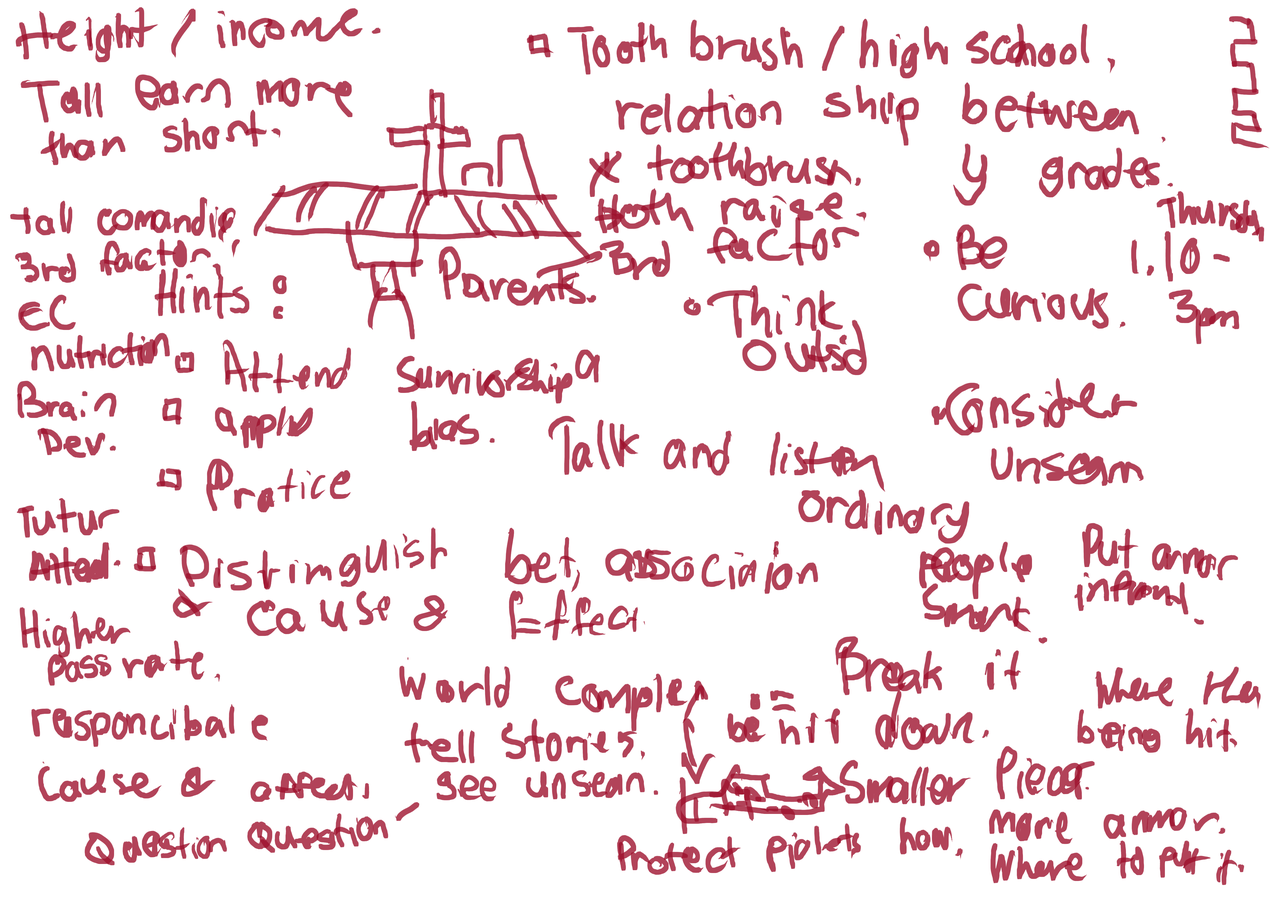 Height / income.
Tall earn more
than short.
tall comandig
3rd factor.
EC
nutrictin
Brain
Dev.
Tutur
Atted.
Higher
pass rate.
responcibale
Cause & affect.
Question Question
Hints :
Attend
apply
Pratice
Distinguish bet, association
& cause & Effect
Parents.
Survivorship
bias.
Tooth brush / high school.
relation ship between
X toothbrush. Y grades.
Both raise.
3rd factor
Think
Outsid
Be
Curious.
Thursday
1.10 -
3pm
Consider
unsean
Talk and liston
ordinary
people
Smart.
Put armor
infront.
World complex
tell stories.
see unsean.
Break it
down.
Smaller Piece.
be hit
Where
being hit.
Protect pialets how.
more armor.
Where to put it.